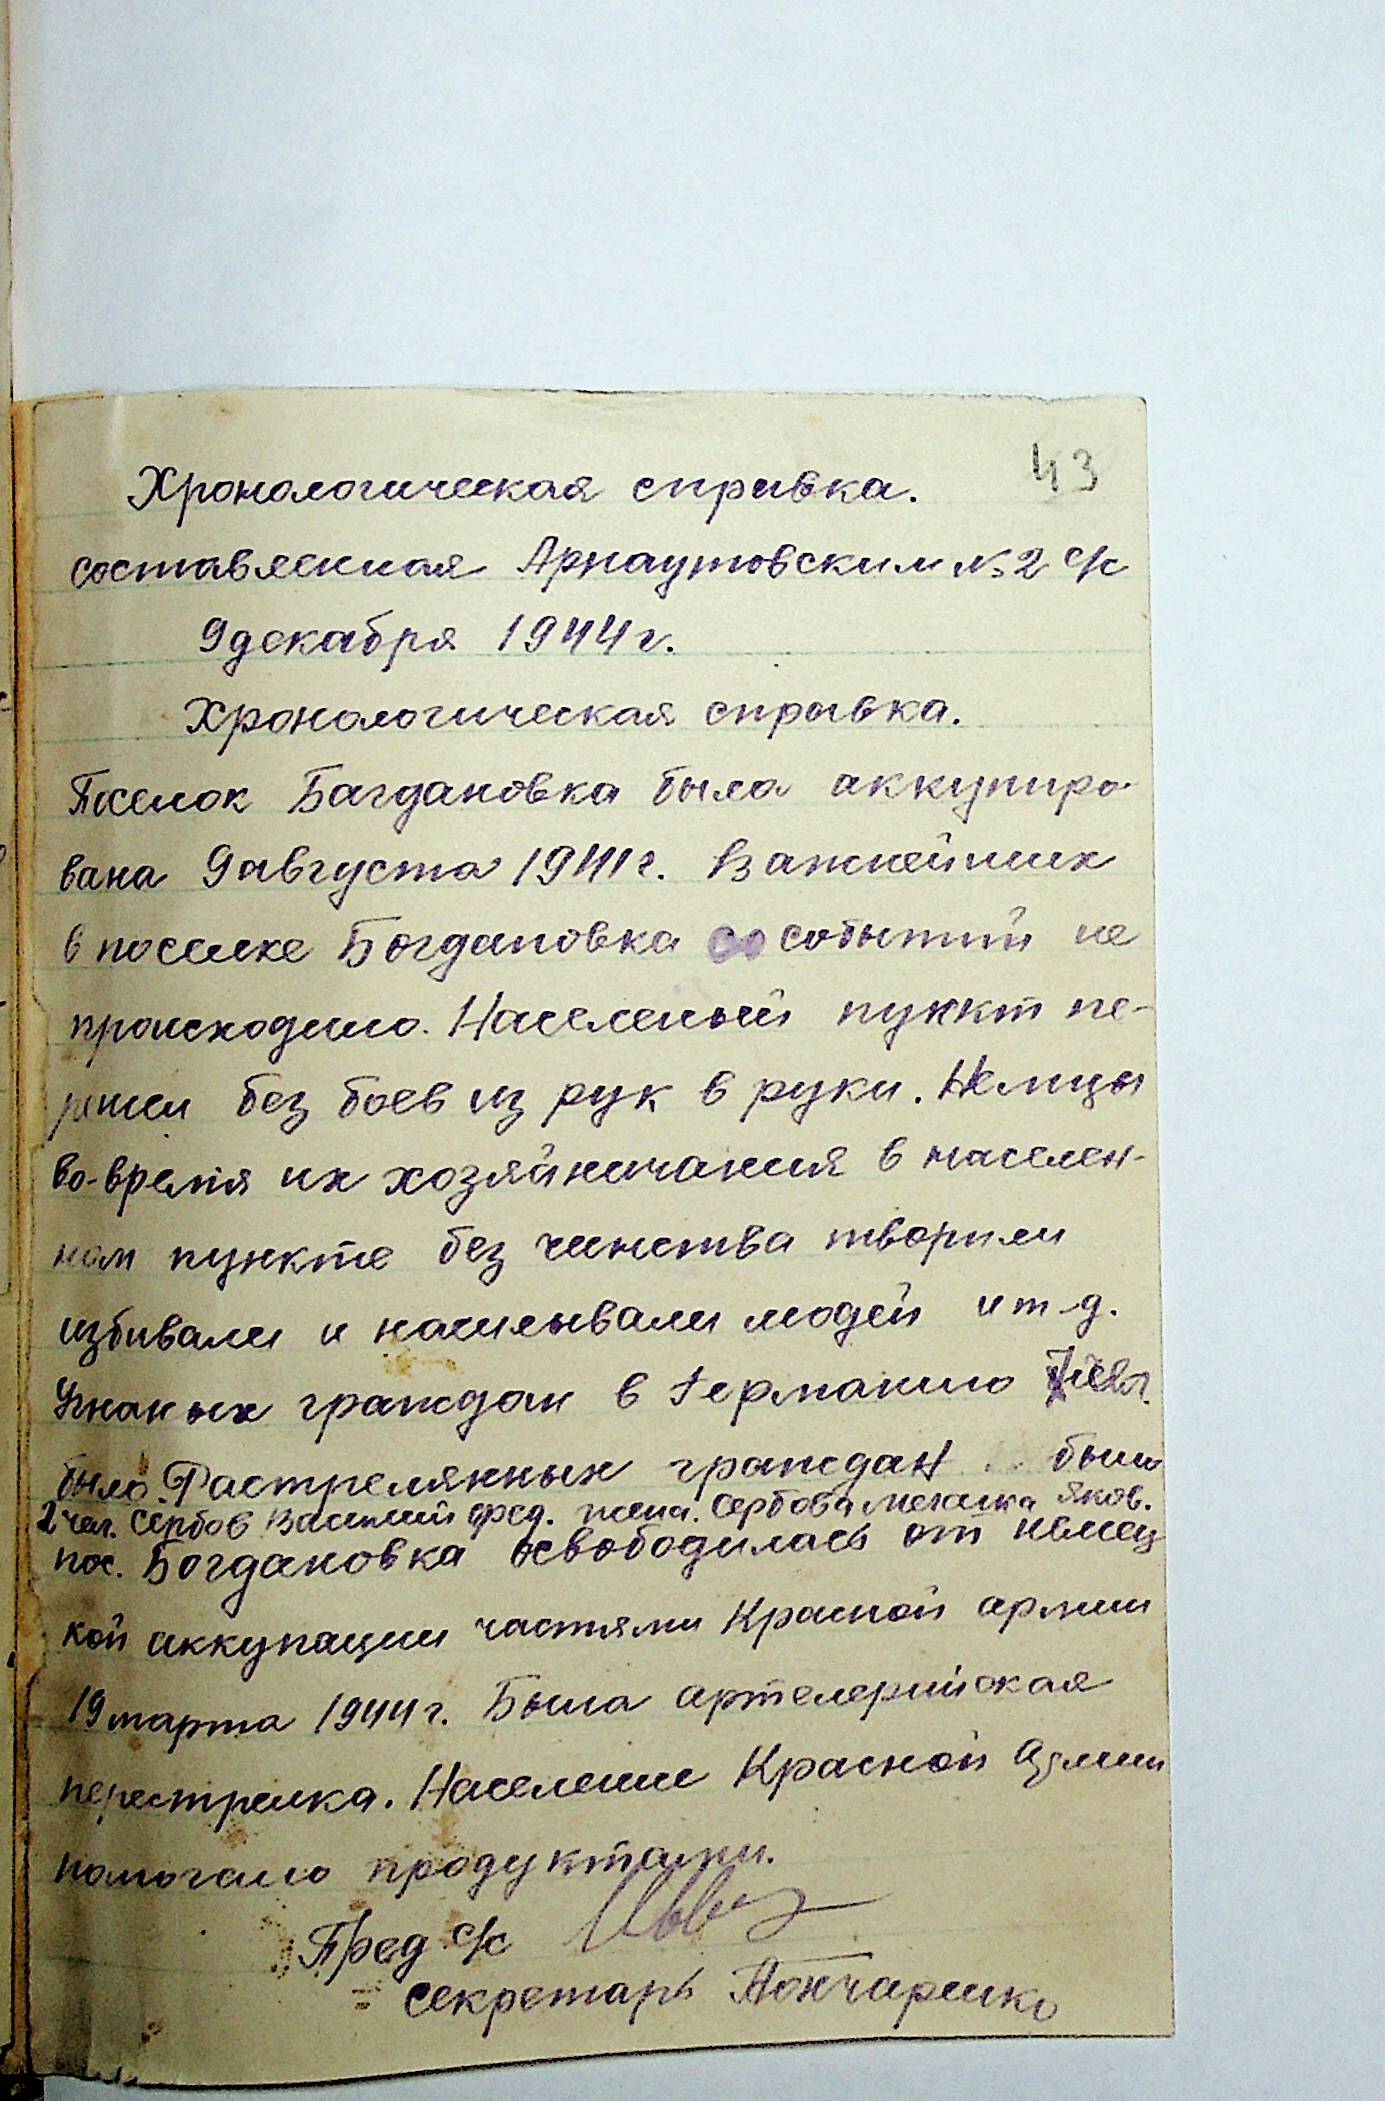 43
Хронологическая справка.
составленная Арнаутовским № 2 с/с
9 декабря 1944 г.
Хронологическая справка.
Поселок Багдановка была аккупиро-
вана 9 августа 1941 г. Важнейших
в поселке Богдановка со событий не
происходило. Населеный пункт пе-
решел без боев из рук в руки. Немцы
во-время их хозяйничания в населен-
ном пункте без чинства творили
избивали и насиловали людей и т-д.
Угнаных граждан в Германию 7 чел.
было. Растрелянных граждан было
2 чел. Сербов Василий Фед. жена. Сербова Яков.
пос. Богдановка освободилась от немец
кой аккупации частями Красной армии
19 марта 1944 г. Была артелерийская
перестрелка. Население Красной Армии
помогало продуктами.
Пред с/с
= секретарь Гончаренко